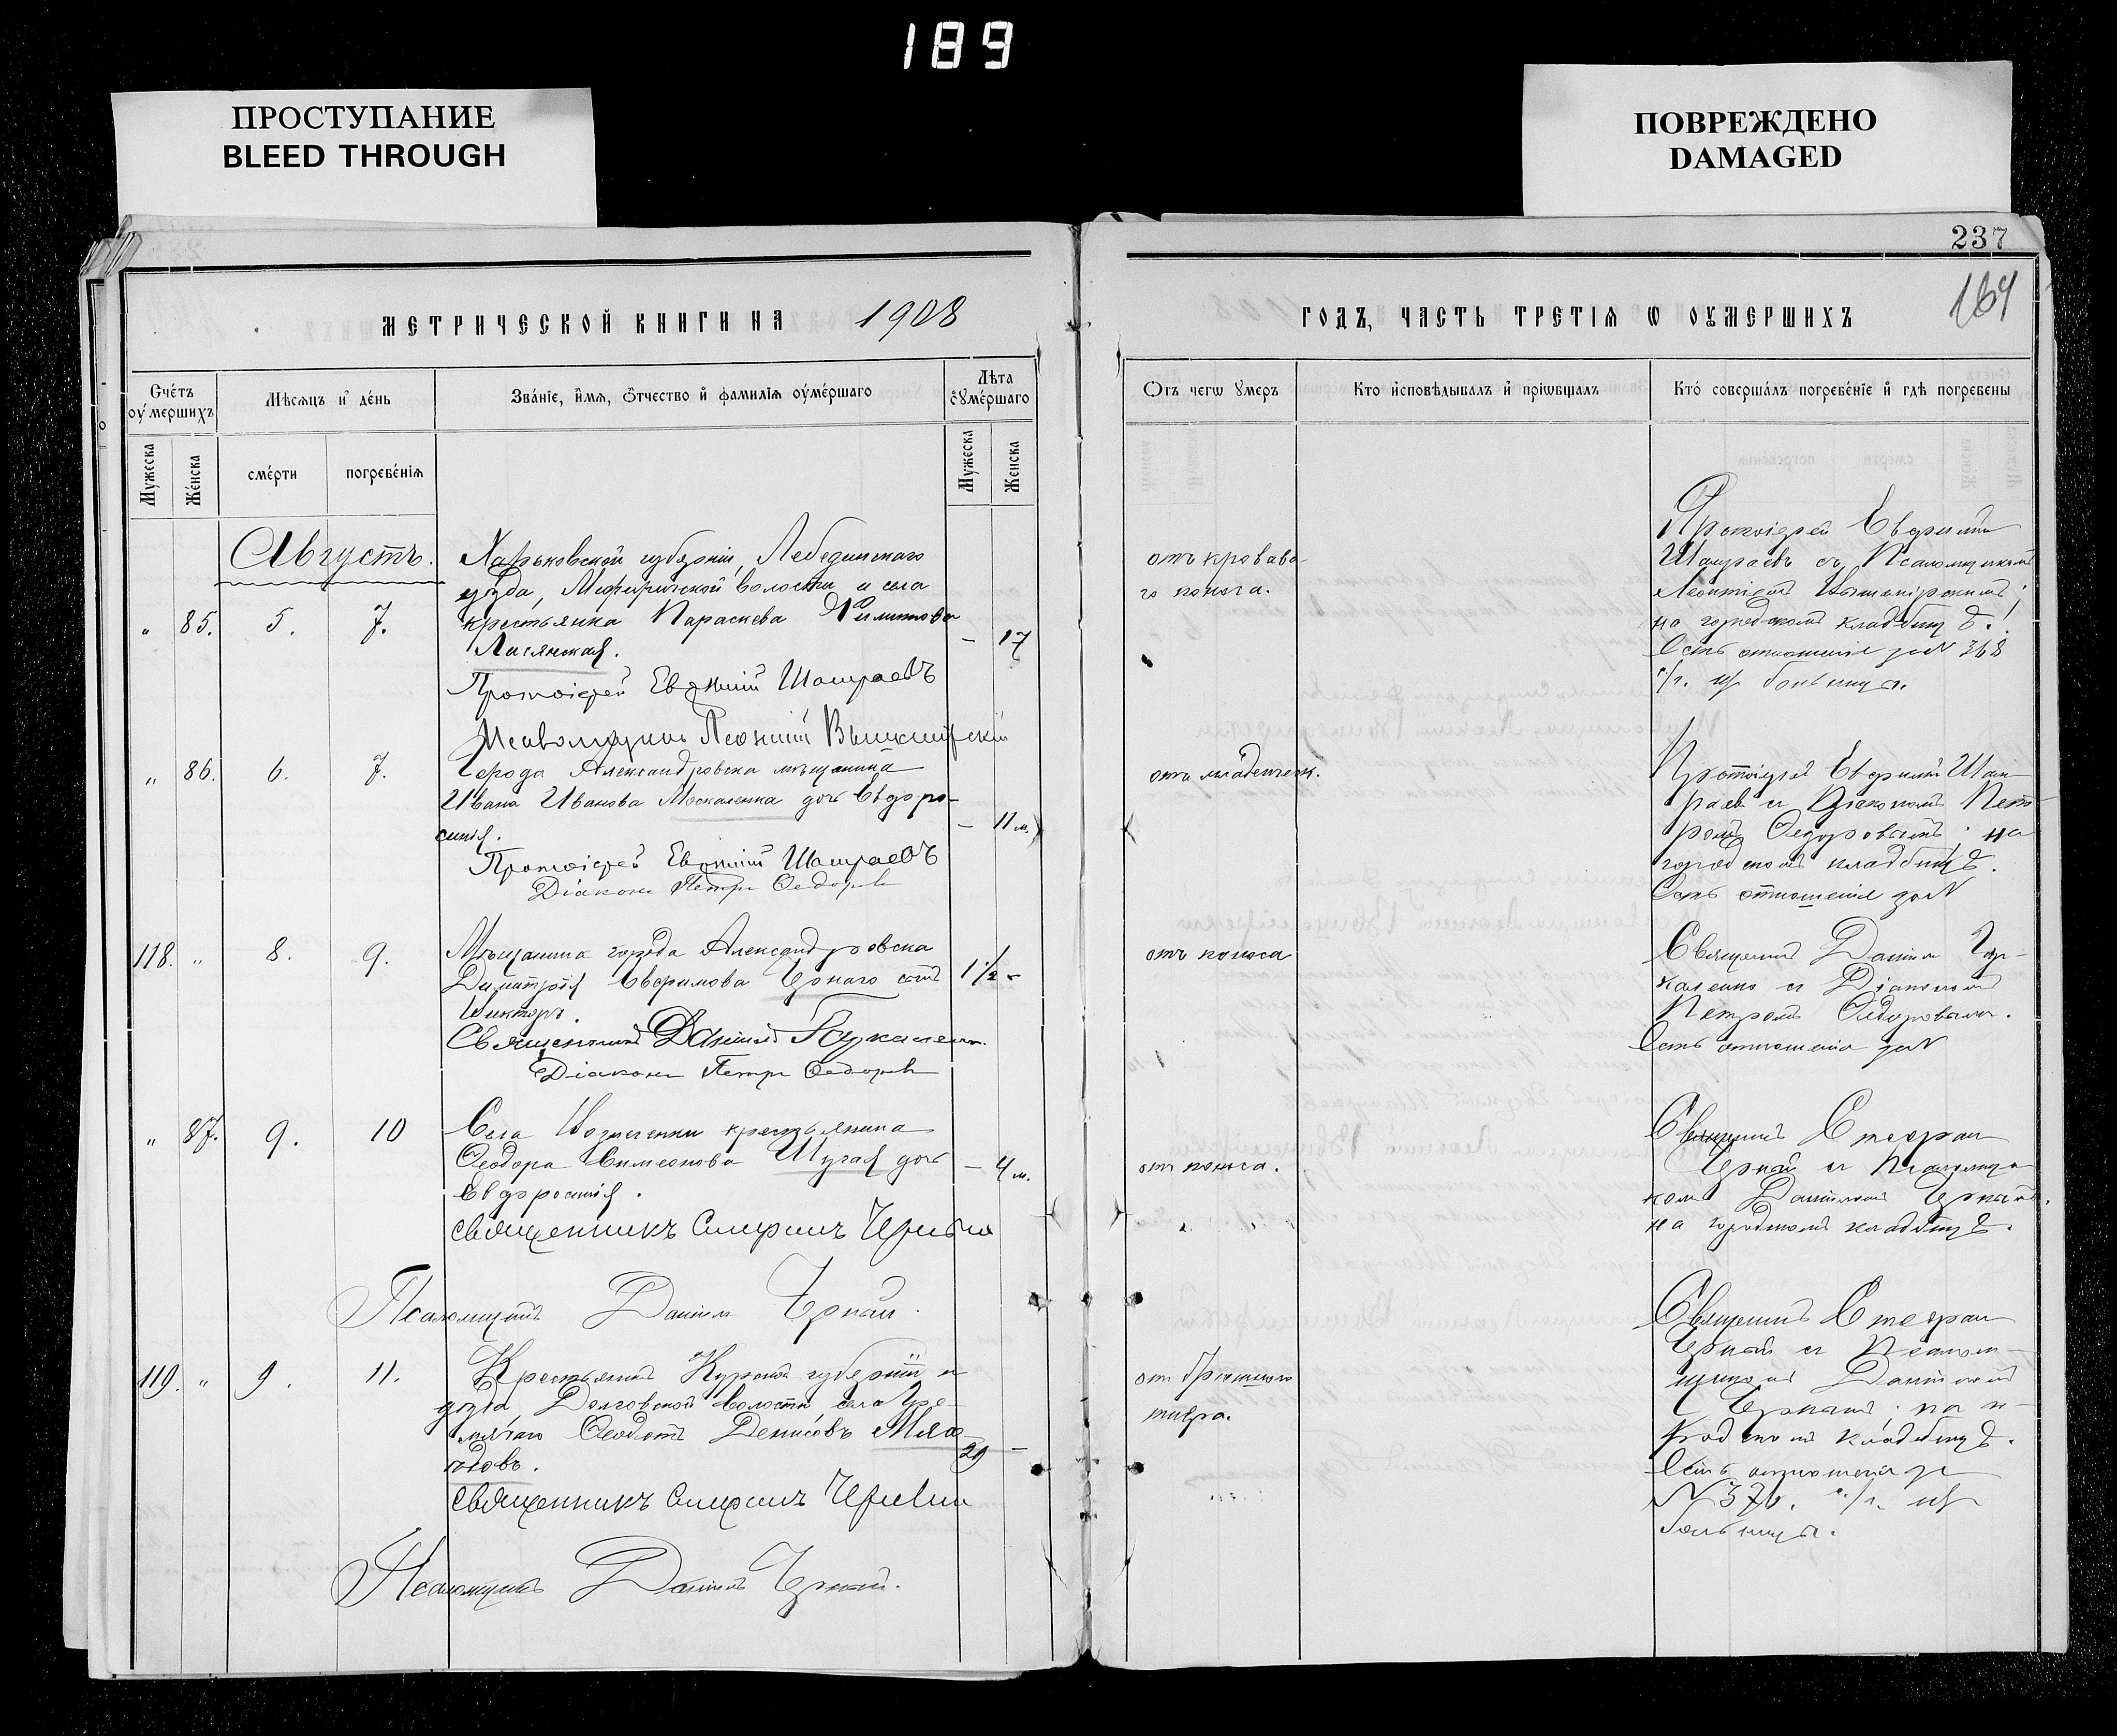 189
ПРОСТУПАНИЕ
BLEED THROUGH
ПОВРЕЖДЕНО
DAMAGED
237
164
МЕТРИЧЕСКОЙ КНИГИ НА 1908
ГОДЪ, ЧАСТЬ ТРЕТІЯ Ѡ ОУМЕРШИХЪ
Счетъ оумершихъ
Мѣсяцъ и день
Званіе, имя, отчество и фамилія оумершаго
Лѣта оумершаго
Мужеска
Женска
смерти
погребенія
Мужеска
Женска
Отъ чегѡ умеръ
Кто исповѣдывалъ и пріѡбщалъ
Кто совершалъ погребеніе и гдѣ погребены
Августъ.
Харьковской губерніи, Лебединскаго
уѣзда, волости и села
" 85. 5. 7. крестьянка Параскева Филиппова
Лисянская. – 17
Протоіерей Евѳимій Шашраевъ
Псаломщикъ Леонтій
отъ кровава-
го поноса.
Протоіерей Евѳимій
съ Псаломщикомъ
Леонтіемъ
на городскомъ кладбищѣ.
Есть отношеніе за N 368
с/г. изъ больницы.
" 86. 6. 7. Города Александровска мѣщанина
Ивана Иванова Москаленка дочь Евфро-
синія. – 11 м.
Протоіерей Евѳимій Шашраевъ
Діаконъ Петръ Ѳедоровъ
отъ младенческ.
Протоіерей Евѳимій Шаш-
раевъ съ Діакономъ Пет-
ромъ Ѳедоровымъ; на
городскомъ кладбищѣ.
Есть отношеніе за N
118. " 8. 9. Мѣщанина города Александровска
Димитрія Евѳимова Чернаго сынъ 1 1/2 –
Викторъ.
Священникъ Даніилъ
Діаконъ Петръ Ѳедоровъ
отъ поноса
Священникъ Даніилъ
съ Діакономъ
Петромъ Ѳедоровымъ.
Есть отношеніе за N
" 87. 9. 10 Села Вознесенки крестьянина
Ѳеодора Симеонова дочь – 4 м.
Евфросинія.
Священникъ Стефанъ Черный
Псаломщикъ Даніилъ Черный.
отъ поноса.
Священникъ Стефанъ
Черный съ Псаломщи-
комъ Даніиломъ Чернымъ.
на городскомъ кладбищѣ.
119. " 9. 11. Крестьянинъ Курской губерніи и
уѣзда Долговской волости села Гре-
мячаго Ѳеодотъ Денисовъ
29 –
Священникъ Стефанъ Черный
Псаломщикъ Даніилъ Черный.
отъ брюшного
тифа.
Священникъ Стефанъ
Черный съ Псалом-
щикомъ Даніиломъ
Чернымъ; на го-
родскомъ кладбищѣ.
Есть отношеніе за
N 376. с/г. изъ
больницы.